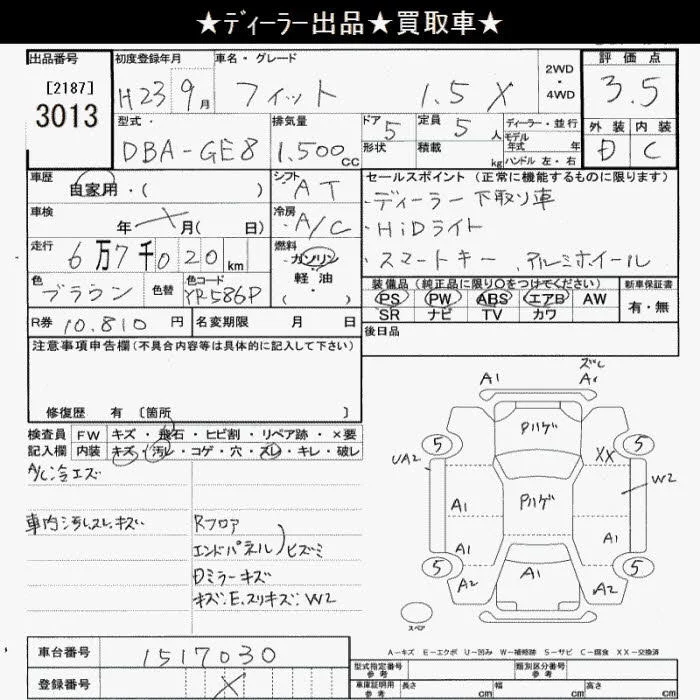 ★ディーラー出品★買取車★
出品番号 初度登録年月 車名・グレード 2WD・4WD 評価点
[2187]
3013
H23年9月 フィット 1.5 X 3.5
型式・ 排気量 ドア 5 定員 5人 ディーラー・並行 外装 内装
DBA-GE8 1,500cc 形状 積載 kg モデル年式 年式 ハンドル 左・右 D C
車歴 自家用・( ) シフト AT セールスポイント(正常に機能するものに限ります)
・ディーラー下取り車
車検 年 X 月( 日) 冷房 A/C ・HiDライト
走行 6万7千020km 燃料 ガソリン 軽油 ・( ) ・スマートキー、アルミホイール
色 ブラウン 色替 色コード YR586P 装備品(純正品に限り○をつけてください) 新車保証書
PS PW ABS エアB AW 有・無
SR ナビ TV カワ
R券 10,810円 名変期限 月 日 後日品
注意事項申告欄(不具合内容等は具体的に記入して下さい)
修復歴 有〔箇所 〕
検査員 FW キズ・飛石・ヒビ割・リペア跡・×要
記入欄 内装 キズ・汚レ・コゲ・穴・スレ・キレ・破レ
A/C冷エズ
車内汚レスレキズ Rフロア
エンドパネル)ヒズミ
Dミラーキズ
キズ:E.スリキズ:W2
ズレ
A1 A1
Pハゲ
5 5
UA2 XX
W2
Pハゲ
A1 A1
A1 A1
5 5
A1
A2 A2
スペア
A―キズ E―エクボ U―凹み W―補修跡 S―サビ C―腐食 XX―交換済
車台番号 1517030 型式指定番号 参考 類別区分番号 参考
登録番号 X 車庫証明用 参考 長さ cm 幅 cm 高さ cm